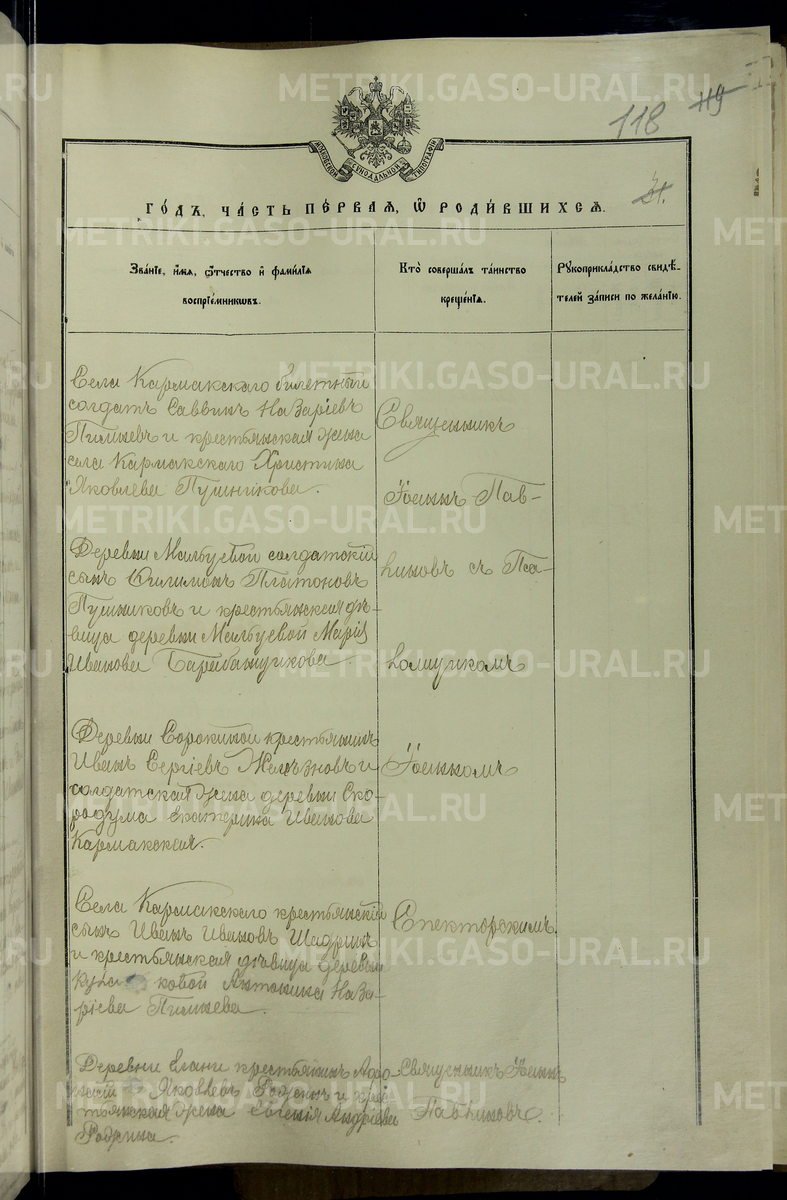 118 119
МОСКОВСКОЙ СѴНОДАЛЬНОЙ ТИПОГРАФІИ
ГОДЪ, ЧАСТЬ ПЕРВАЯ, Ѡ РОДИВШИХСЯ.
Званіе, имя, ѻтчество и фамилія воспріемникѡвъ.
Кто совершалъ таинство крещенія.
Рꙋкоприкладство свидѣтелей записи по желанію.
Села Кармакскаго билетный
солдатъ Саввинъ Назаріевъ
Пилневъ и крестьянская жена
села Кармакскаго Христина
Яковлева Пушникова.
Священникъ
Іоаннъ Пав-
Деревни Мальцевой солдатскій
сынъ Филимонъ Платоновъ
Пушниковъ и крестьянская дѣ-
вица деревни Мальцевой Марія
Иванова Барабанщикова
линовъ съ Пса-
ломщикомъ
Деревни Сорокиной крестьянинъ
Иванъ Сергіевъ Желѣзновъ и
солдатская жена деревни Ско-
родума Екатерина Иванова
Кармакская.
Іоанномъ
Села Кармакскаго крестьянскій
сынъ Иванъ Ивановъ Шадринъ
и крестьянская дѣвица деревни
ковой Антонина Наза-
ріева Пилнева.
Спекторскимъ
Деревни Елани крестьянинъ
Яковлевъ Родинъ и крес-
тьянская жена Евгенія Андреева
Родина.
Священникъ Іоаннъ
Павлиновъ.
METRIKI.GASO-URAL.RU